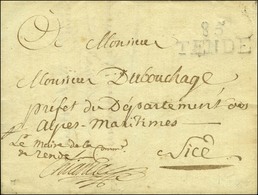 85
TENDE
A Monsieur
Monsieur Dubouchage
prefet du Departement des
Alpes-Maritimes
Le Maire de la Commune
de Tende
Nice